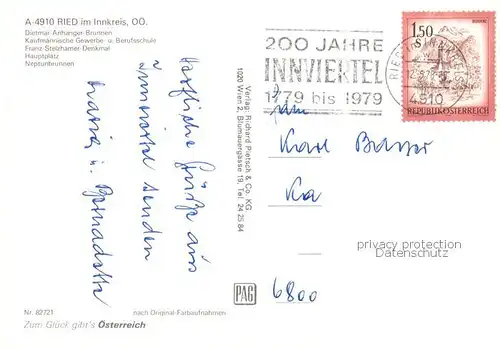 A-4910 RIED im Innkreis, OÖ.
Dietmar Anthanger-Brunnen
Kaufmännische Gewerbe- u. Berufsschule
Franz-Stelzhamer-Denkmal
Hauptplatz
Neptunbrunnen
Herzliche Grüße aus
Innviertel senden
Maria u. Bernadette
Nr. 82721
nach Original-Farbaufnahmen
Zum Glück gibt's Österreich
Verlag: Richard Pietsch & Co. KG
1020 Wien 2, Blumauergasse 19, Tel. 24 25 84
PAG
200 JAHRE
INNVIERTEL
1779 bis 1979
RIED INNKREIS
4910
1.50
REPUBLIK ÖSTERREICH
Karl
Ka
6800
privacy protection
Datenschutz